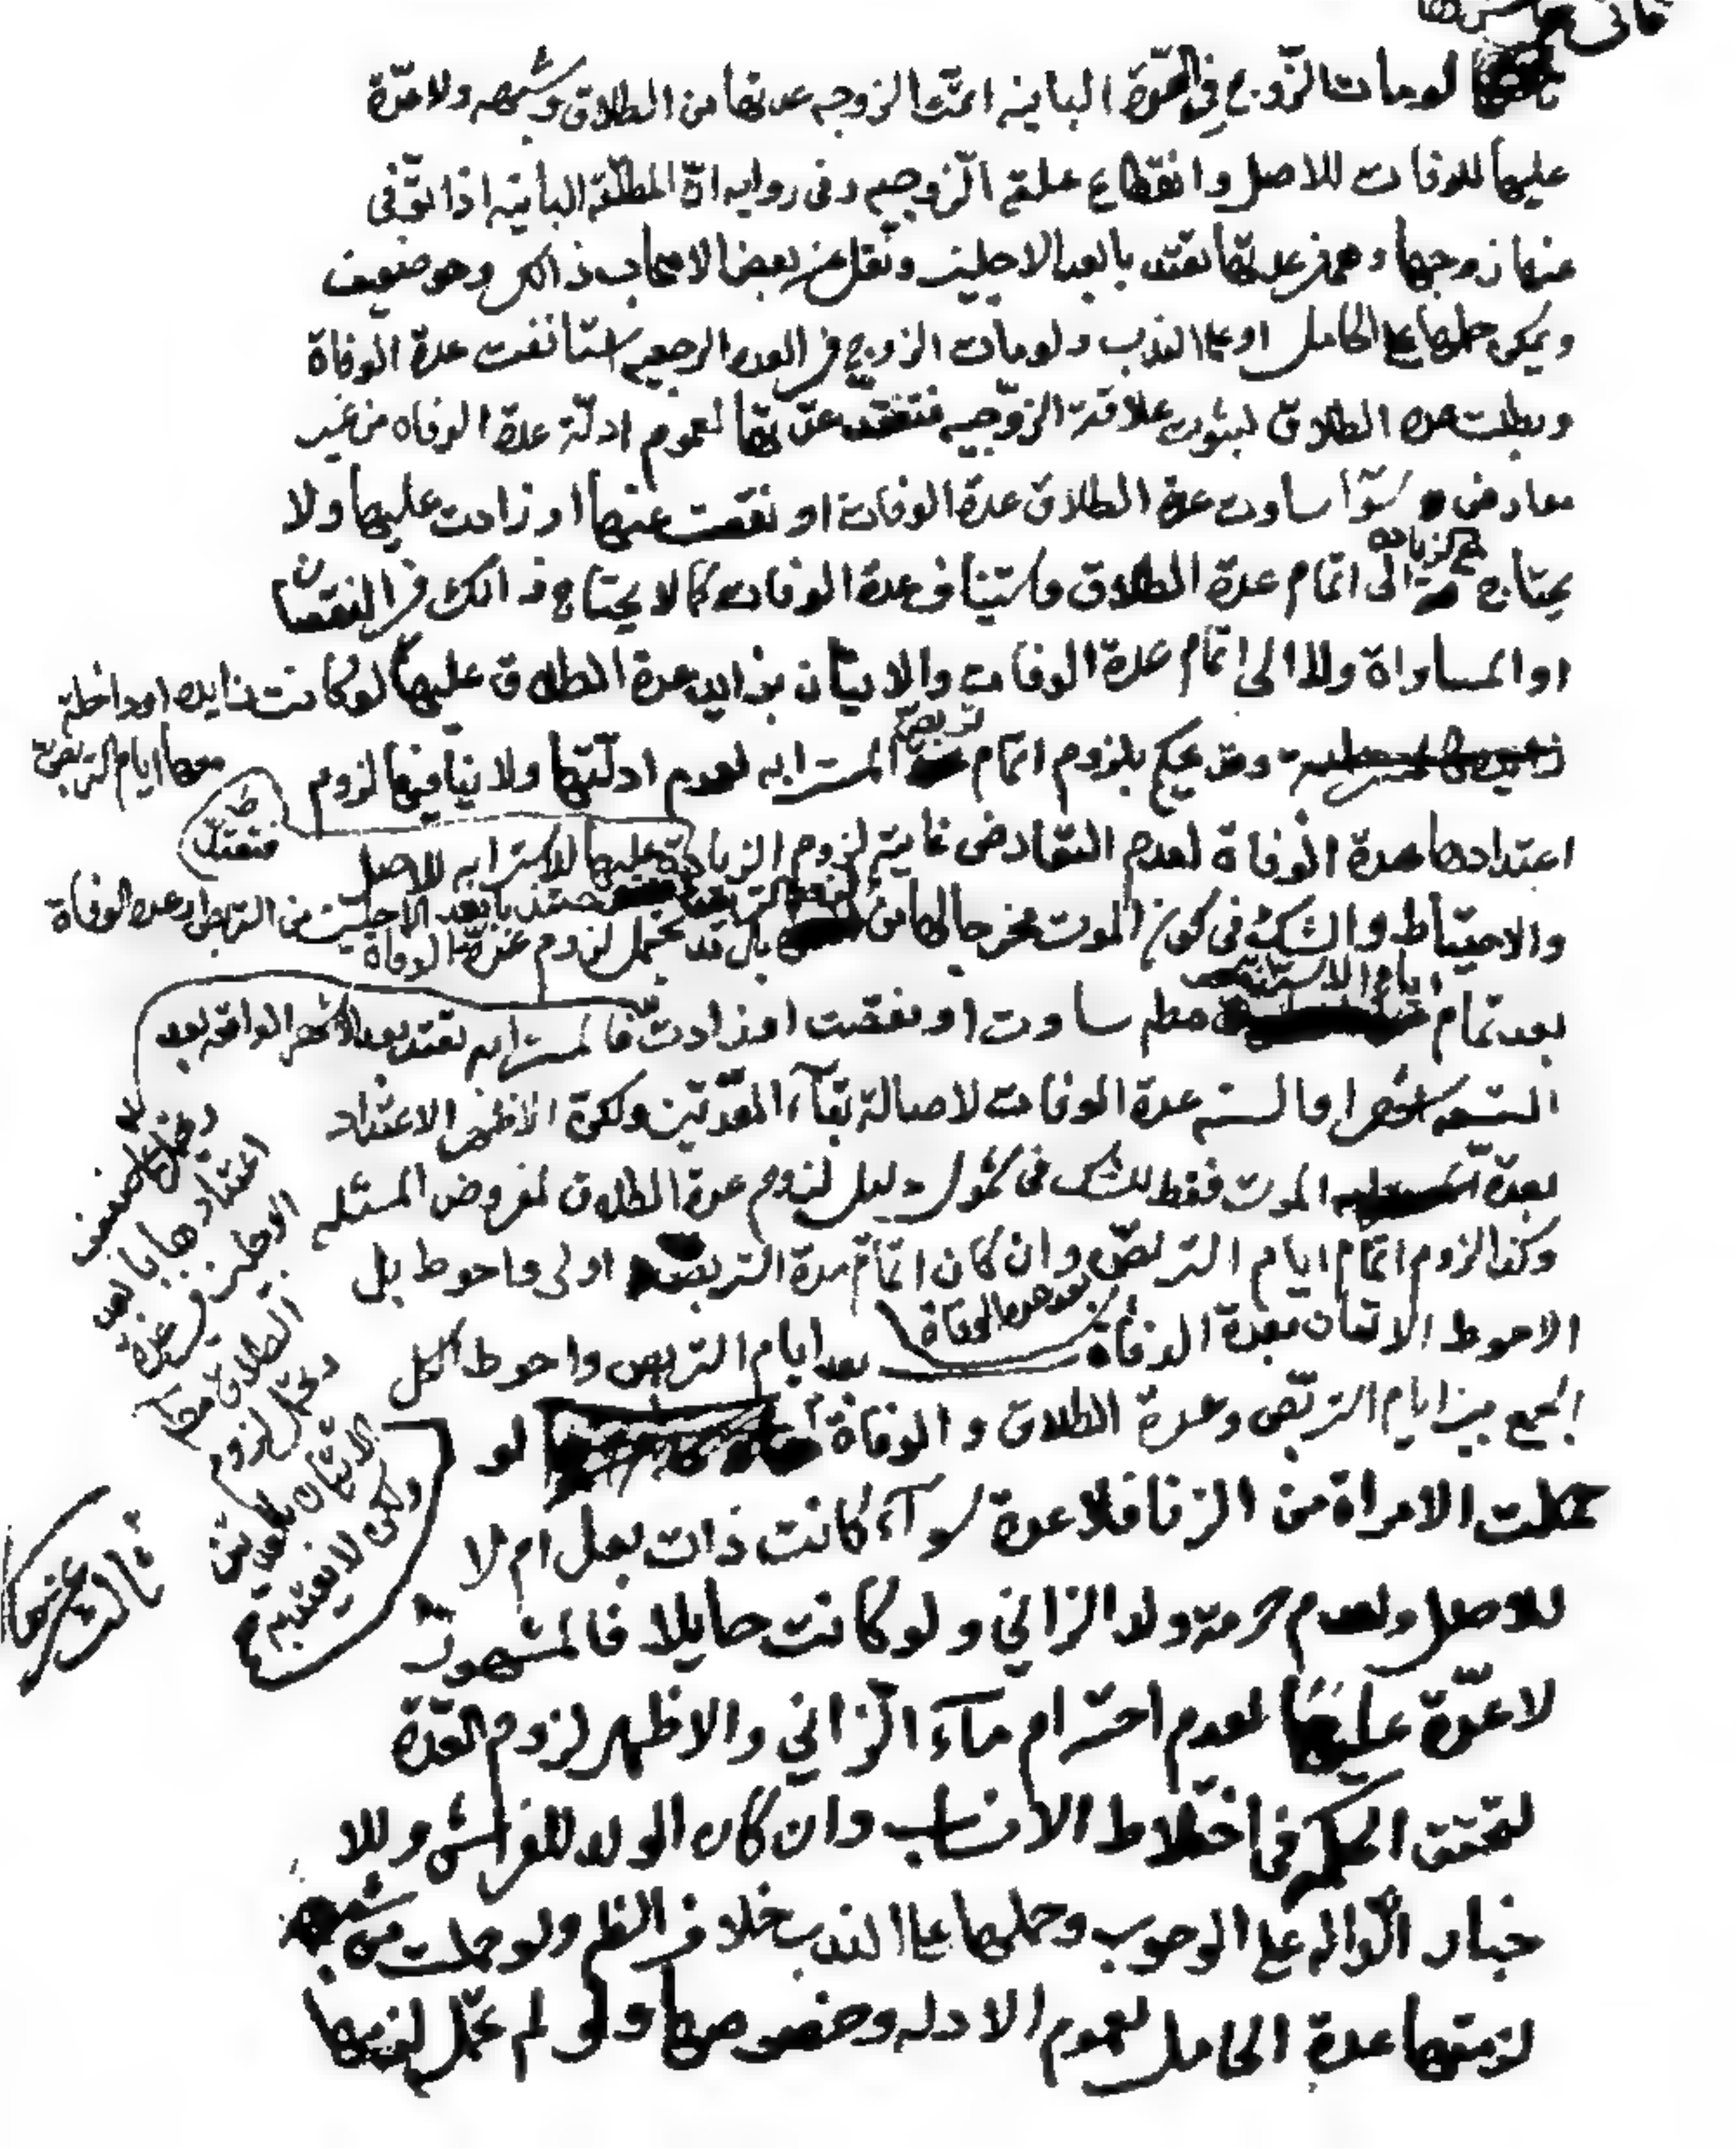 لو مات الزّوج في العدّة الباينه اتمّت الزوجه عدتها من الطلاق وشبهه ولا عدّة
عليها للوفات للاصل وانقطاع علقة الزّوجيه وفي روايه انّ المطلّقه الباينه اذا توّفى
عنها زوجها وهي في عدتها تعتد بابعد الاجلين ونقل عن بعض الاصحاب ذالك وهو ضعيف
ويمكن حملها على الحامل او على الندب ولو مات الزوج في العده الرجعيه استانفت عدة الوفاة
وبطلت عدة الطلاق لثبوت علاقة الزوّجيه فتعتدّ عدّتها لعموم ادلّة عدة الوفاه من غير
معارض سوآء ساوت عدة الطلاق عدة الوفات او نقصت عنها او زادت عليها ولا
يحتاج مع الزياده الى اتمام عدة الطلاق واستيناف عدة الوفات كما لا يحتاج ذالك في النقصان
او المساواة ولا الى اتمام عدة الوفات والاتيان بزايد عدة الطلاق عليها لو كانت زايده او داخلة
معها ايام التربص
وقد يحكم بلزوم اتمام تربص المسترابه لعموم ادلّتها ولا ينافيها لزوم
اعتدادها عدة الوفاة لعدم التعارض غاية لزوم الزيادة عليها للاسترابه للاصل
فتعتدّ بابعد الاجلين من التربص وعدة الوفاة
والاحتياط والشك في كون الموت مخرجا لها من بل قد يحتمل لزوم عدّة الوفاة
بعد تمام ايام الاسترابه ساوت او نقصت او زادت فالمسترابه تعتد بعد الاشهر الواقعه بعد
التسعه اشهر او السنه عدة الوفات لاصالة بقآء العدّتين ولكن الاظهر الاعتداد
بعدة الموت فقط للشك في شمول دليل لزوم عدة الطلاق لمفروض المسئله
وكذا لزوم اتمام ايام التربص وان كان اتمام مدة التربص اولى واحوط بل
الاحوط الاتيان بعدة الوفاة بعد ايام التربص واحوط الكل
بعد عدة الوفاة
الجمع بين ايام التربّص وعدة الطلاق والوفاة لو
حملت الامراة من الزنا فلا عدة سوآء كانت ذات بعل ام لا
للاصل ولعدم حرمة ولد الزاني ولو كانت حايلا فالمشهور
لا عدّة عليها لعدم احترام مآء الزّاني والاظهر لزوم العدّة
لتحقق الحكمه في اختلاط الانساب وان كان الولد للفراش وللا
خبار الدّاله على الوجوب وحملها على الندب خلاف الظم ولو حملت من شبهه
لزمتها عدة الحامل لعموم الادله وخصوصها ولو لم تحمل لزمها
ويحتمل ضعيفا
اعتدادها بابعد
الاجلين في عدة
الطلاق
ويحتمل لزوم
الاتيان بالعدتين
ولكن لا يعتد به